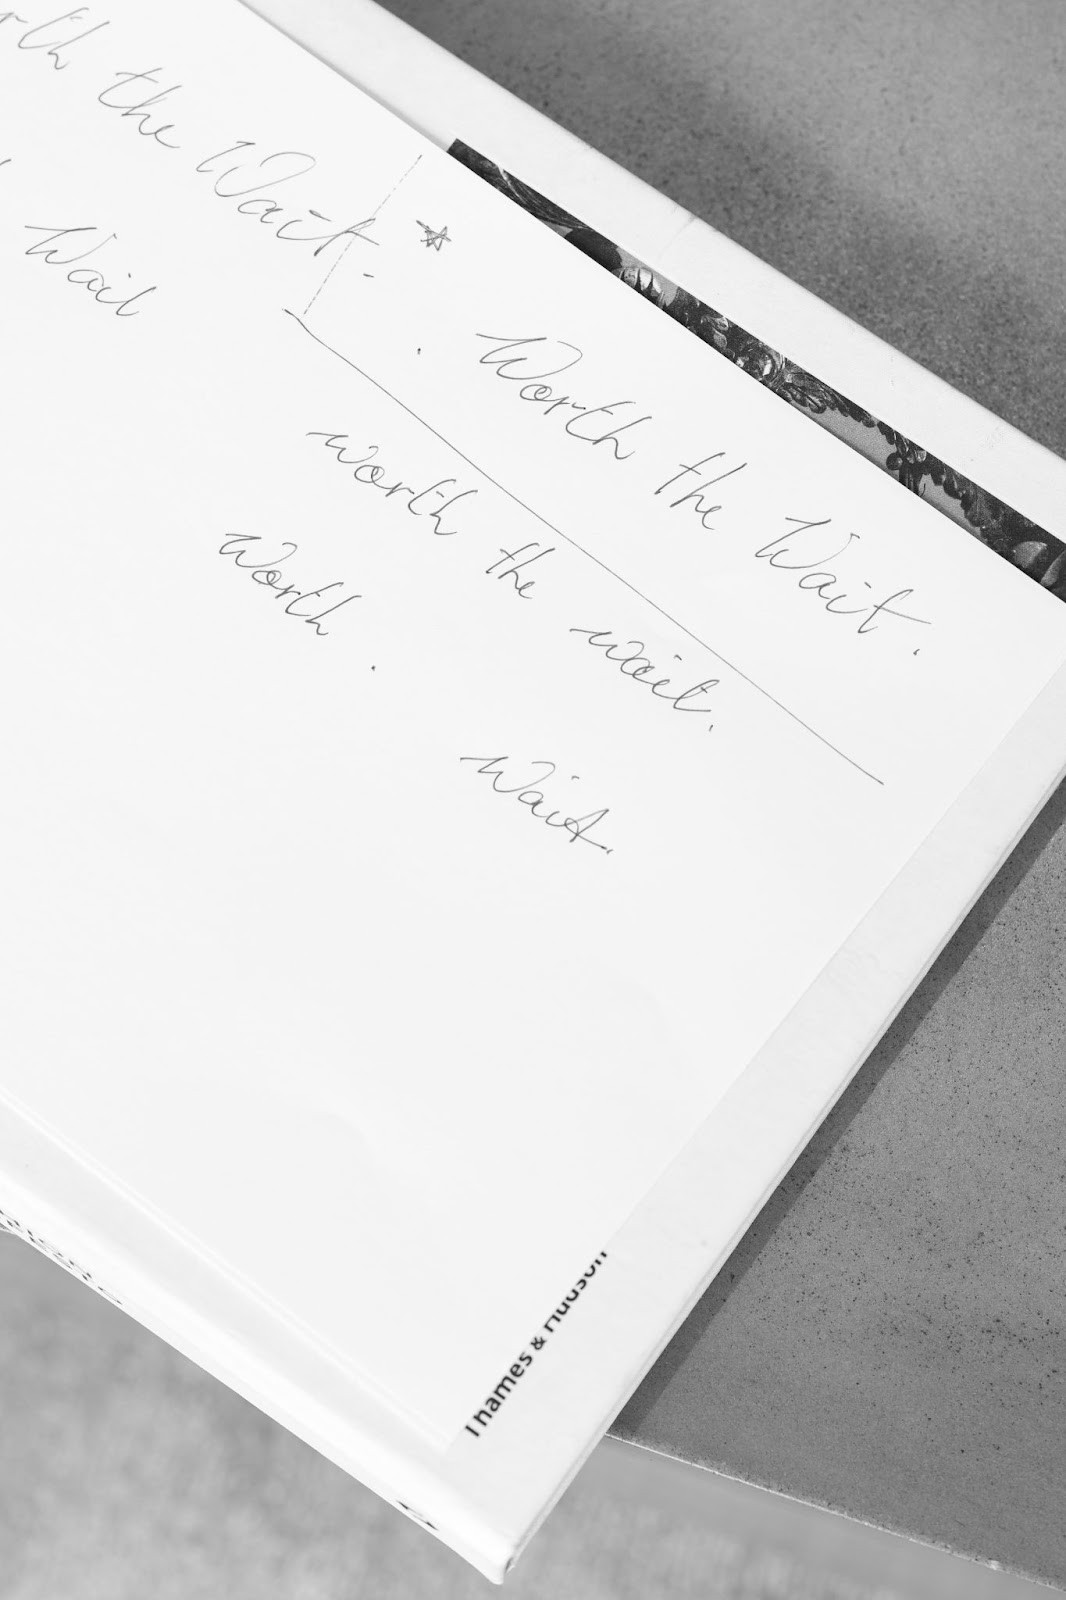 the Wait.
Wait
Worth the Wait.
worth the wait.
Worth.
Wait.
Thames & Hudson